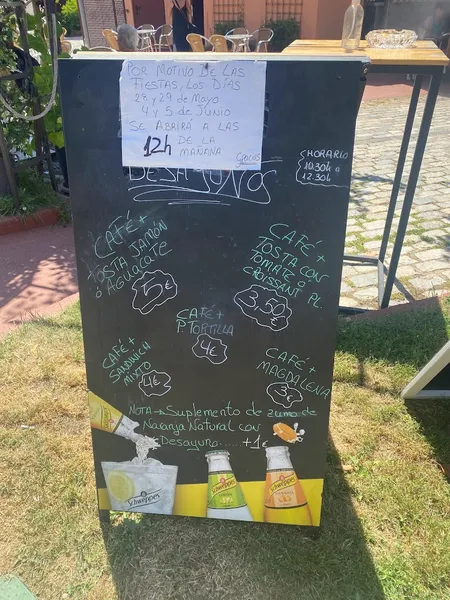 POR MOTIVO DE LAS
FIESTAS, LOS DÍAS
28 y 29 de MAYO
4 y 5 de JUNIO
SE ABRIRÁ A LAS
12h DE LA
MAÑANA
Gracias
DESAYUNOS
CHORARIO
10:30h a
12:30h
CAFÉ +
TOSTA JAMÓN
o AGUACATE
5€
CAFÉ +
TOSTA CON
TOMATE o
CROISSANT PL.
3,50€
CAFÉ +
P. TORTILLA
4€
CAFÉ +
SANDWICH
MIXTO
4€
CAFÉ +
MAGDALENA
3€
NOTA → Suplemento de zumo de
Naranja Natural con
Desayuno..... +1€
Schweppes
Schweppes
Schweppes